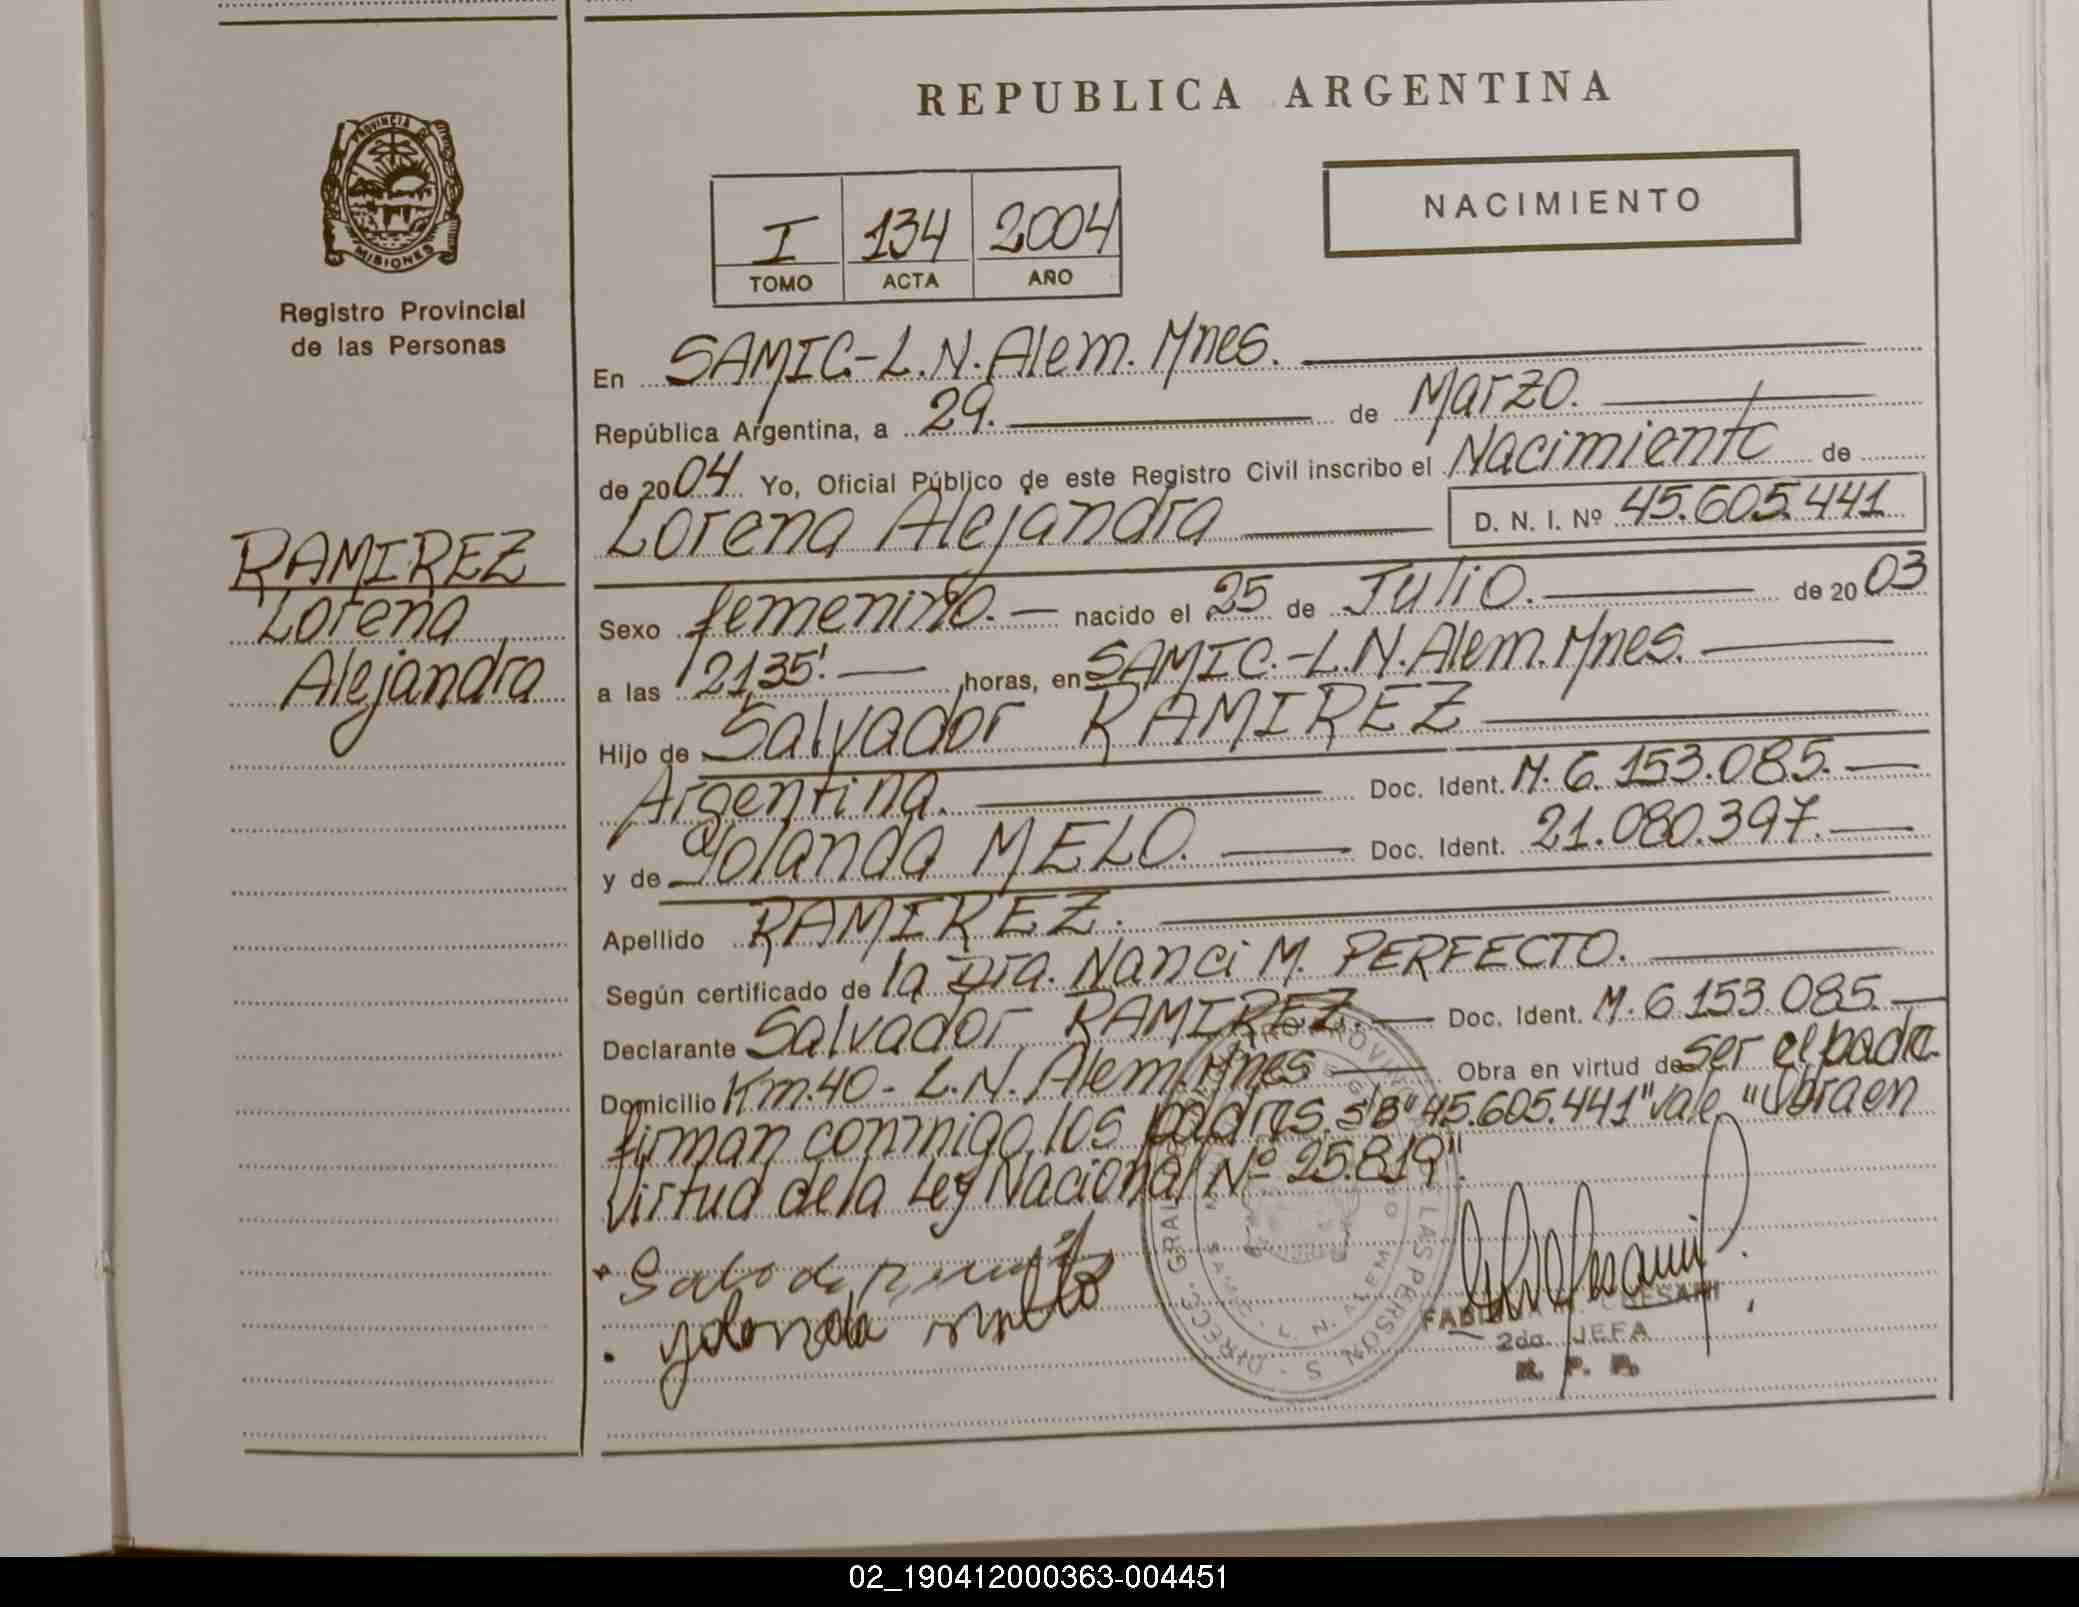 REPUBLICA ARGENTINA
PROVINCIA DE
MISIONES
Registro Provincial
de las Personas
I 134 2004
TOMO ACTA AÑO
NACIMIENTO
RAMIREZ
Lorena
Alejandra
En SAMIC.-L.N.Alem.Mnes.
República Argentina, a 29. de Marzo.
de 2004 Yo, Oficial Público de este Registro Civil inscribo el Nacimiento de
Lorena Alejandra D. N. I. Nº 45.605.441
Sexo femenino. nacido el 25 de Julio. de 2003
a las 21,35'. horas, en SAMIC.-L.N.Alem.Mnes.
Hijo de Salvador RAMIREZ
Argentina. Doc. Ident. M. 6.153.085.
y de Yolanda MELO. Doc. Ident. 21.080.397.
Apellido RAMIREZ.
Según certificado de la Dra. Nanci M. PERFECTO.
Declarante Salvador RAMIREZ. Doc. Ident. M. 6.153.085.
Domicilio Km.40- L.N. Alem.Mnes Obra en virtud de ser el padre.
firman conmigo los padres. S/B "45.605.441" vale, "Obra en
virtud de la Ley Nacional Nº 25.819".
yolanda mello
2da. JEFA
R. P. P.
02_190412000363-004451